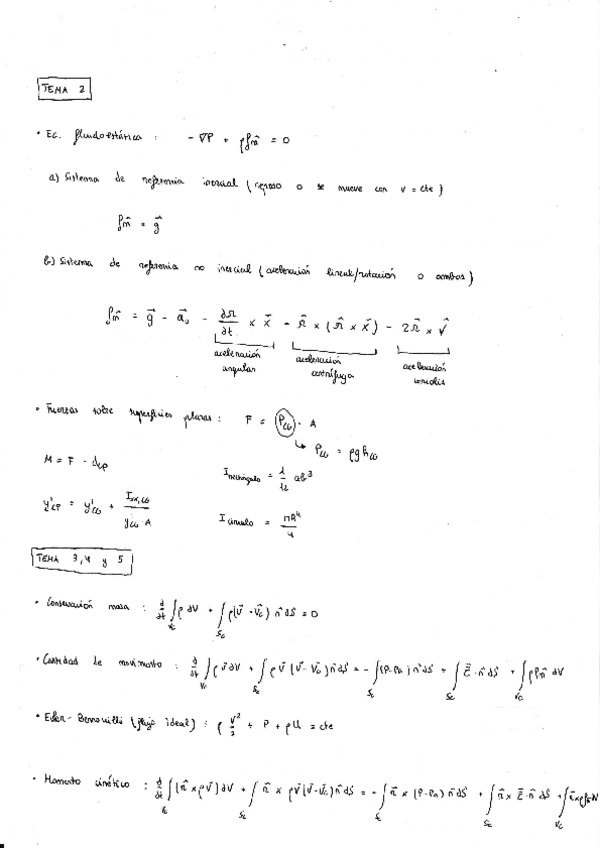 TEMA 2
• Ec. fluidoestática : - ∇P + ρf⃗m = 0
a) Sistema de referencia inercial (reposo o se mueve con v = cte)
f⃗m = g⃗
b) Sistema de referencia no inercial (aceleración lineal/rotación o ambas)
f⃗m = g⃗ - a⃗₀ - ∂Ω/∂t × x⃗ - Ω⃗ × (Ω⃗ × x⃗) - 2Ω⃗ × v⃗
aceleración angular
aceleración centrífuga
aceleración coriolis
• Fuerzas sobre superficies planas : F = P_CG · A
↳ P_CG = ρg h_CG
M = F · d_CP
I rectángulo = 1/12 ab³
y'_CP = y'_CG + I_xx,CG / y_CG · A
I círculo = πR⁴/4
TEMA 3, 4 y 5
• Conservación masa : d/dt ∫_Vc ρ dV + ∫_Sc ρ(v⃗ - v⃗c) n⃗ dS = 0
• Cantidad de movimiento : d/dt ∫_Vc ρ v⃗ dV + ∫_Sc ρ v⃗ (v⃗ - v⃗c) n⃗ dS = - ∫_Sc (P-Pa) n⃗ dS + ∫_Sc τ̿ · n⃗ dS + ∫_Vc ρf⃗m dV
• Euler - Bernouilli (flujo ideal) : ρ v²/2 + P + ρU = cte
• Momento cinético : d/dt ∫ (r⃗ × ρv⃗) dV + ∫_Sc r⃗ × ρv⃗ (v⃗ - v⃗c) n⃗ dS = - ∫_Sc r⃗ × (P-Pa) n⃗ dS + ∫_Sc r⃗ × τ̿ · n⃗ dS + ∫_Vc r⃗ × ρf⃗m dV